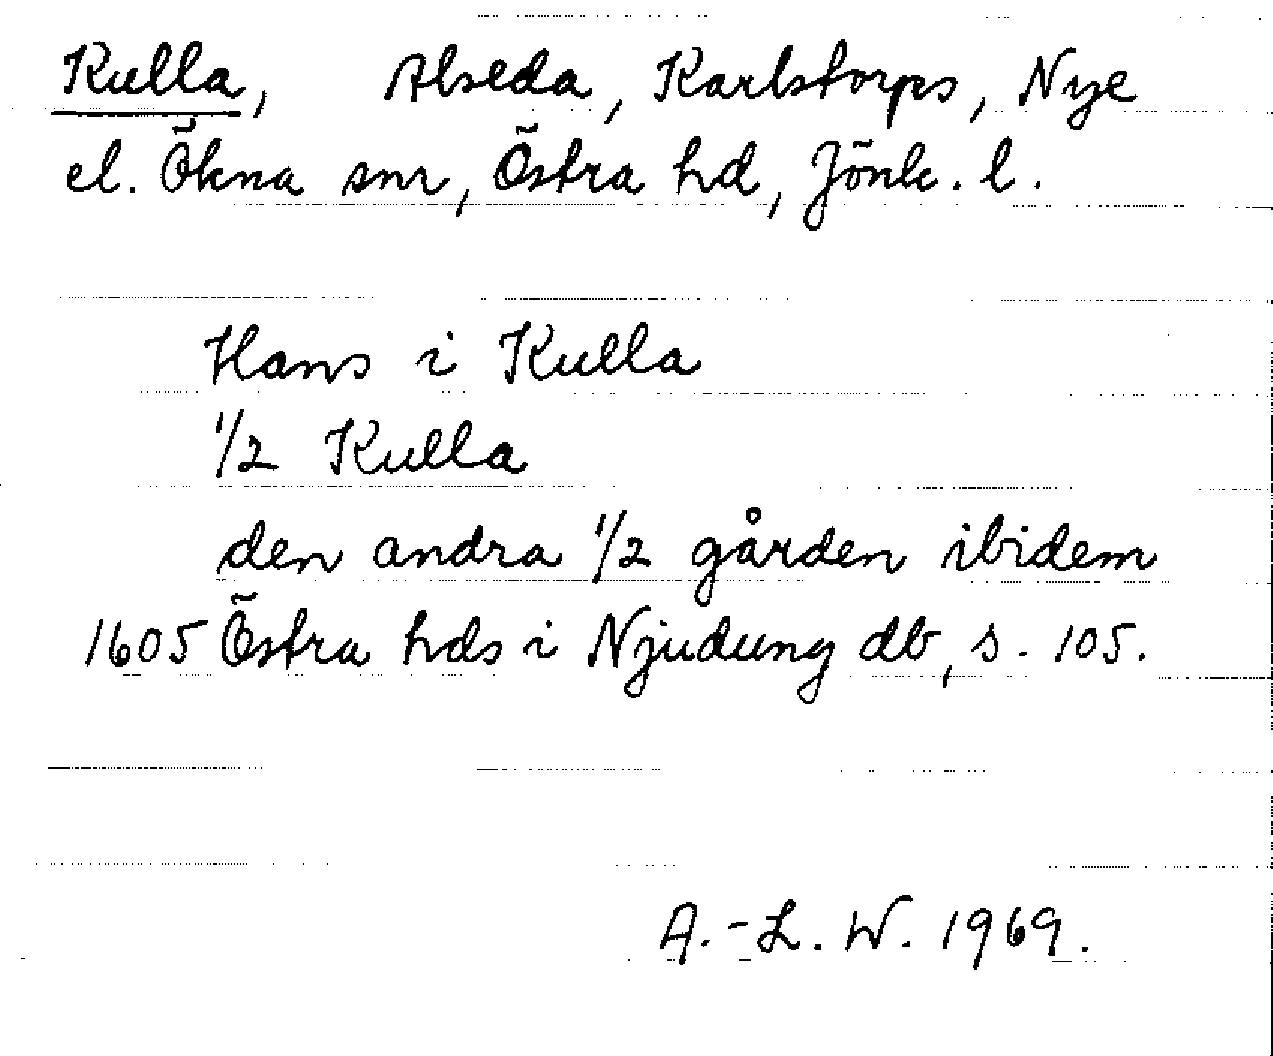 Kulla, Alseda, Karlstorps, Nye
el. Ökna snr, Östra hd, Jönk. l.
Hans i Kulla
1/2 Kulla
den andra 1/2 gården ibidem
1605 Östra hds i Njudung db, s. 105.
A.-L. W. 1969.